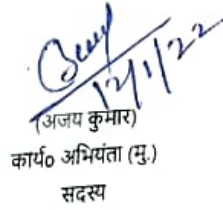 12/1/22
(अजय कुमार)
कार्य० अभियंता (मु.)
सदस्य